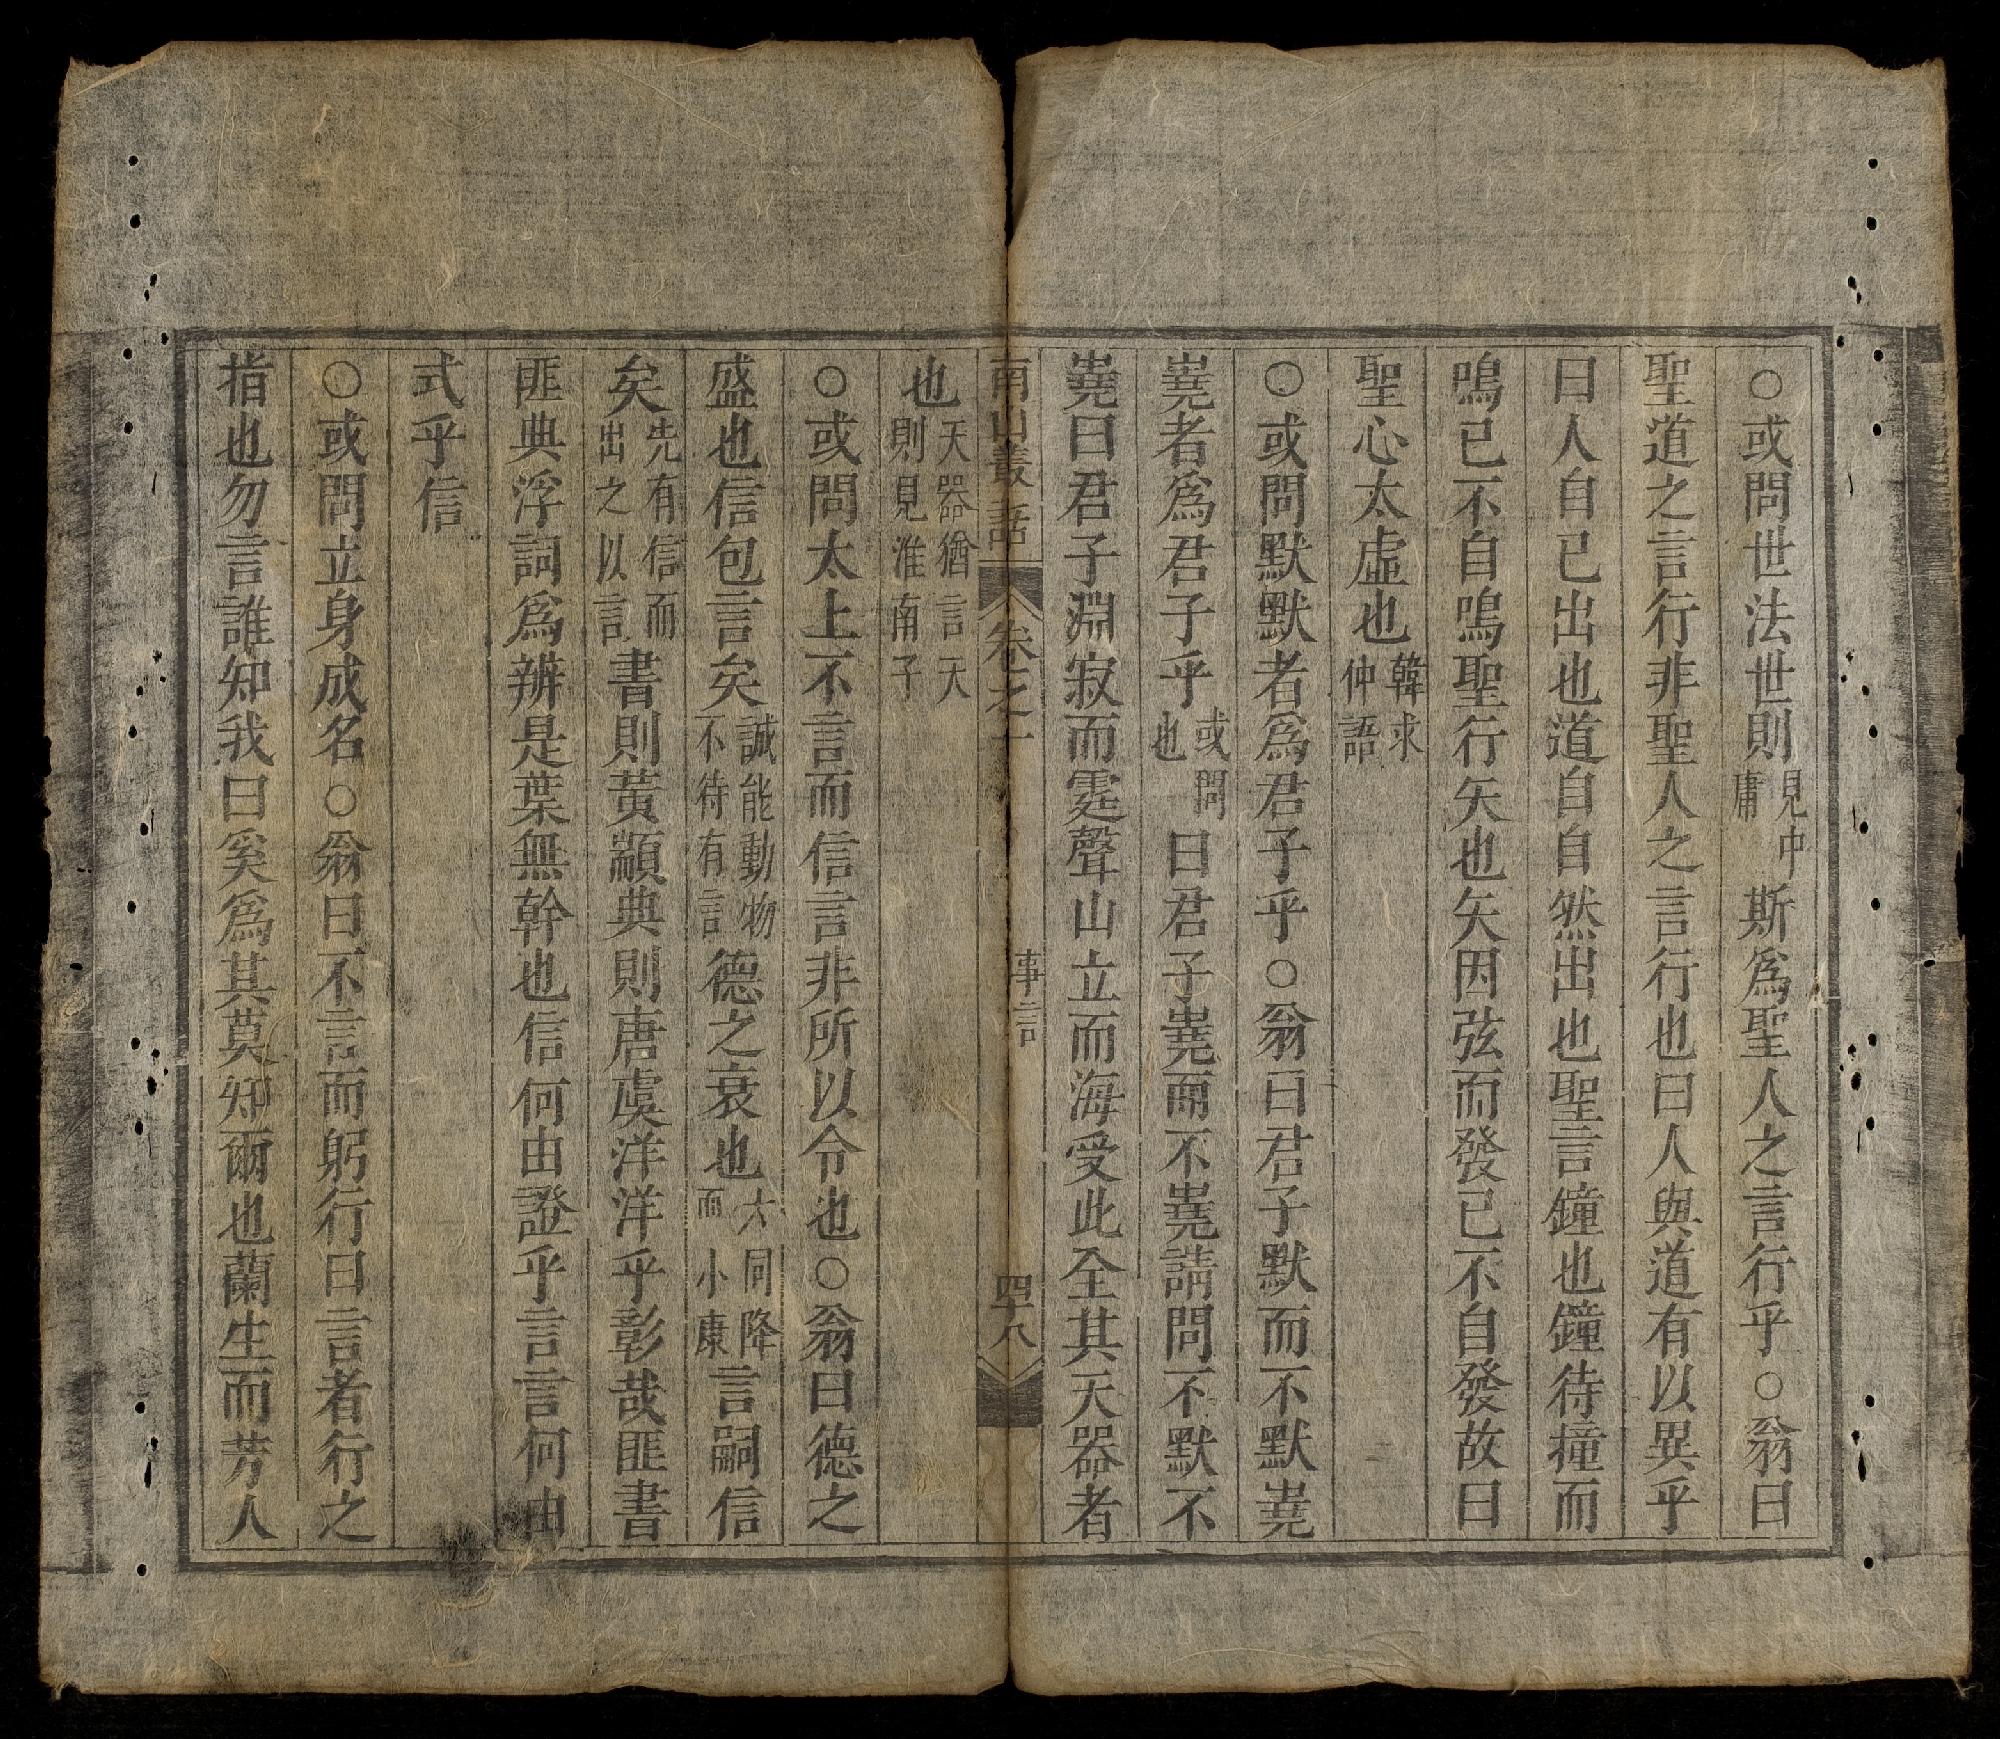 ○或問世法世則見中庸斯爲聖人之言行乎○翁曰
聖道之言行非聖人之言行也曰人與道有以異乎
曰人自已出也道自自然出也聖言鐘也鐘待撞而
鳴已不自鳴聖行矢也矢因弦而發已不自發故曰
聖心太虛也韓求仲語
○或問默默者爲君子乎○翁曰君子默而不默嶤
嶤者爲君子乎或問也曰君子嶤而不嶤請問不默不
嶤曰君子淵寂而霆聲山立而海受此全其天器者
南山叢語
卷之一
事言
四十八
也天器猶言天則見淮南子
○或問太上不言而信言非所以令也○翁曰德之
盛也信包言矣誠能動物不待有言德之衰也大同降而小康言嗣信
矣先有信而出之以言書則黃顓典則唐虞洋洋乎彰哉匪書
匪典浮詞爲辨是葉無幹也信何由證乎言言何由
式乎信
○或問立身成名○翁曰不言而躬行曰言者行之
指也勿言誰知我曰奚爲其莫知爾也蘭生而芳人